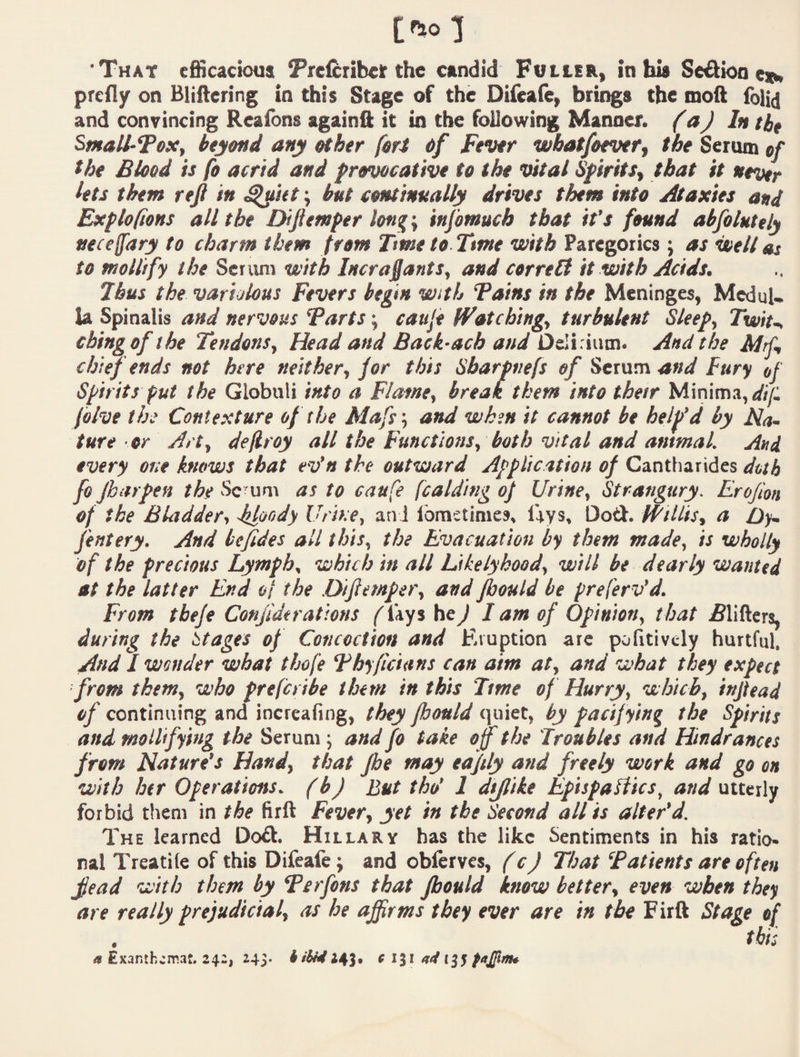 [ 20 ]
'THAT efficacious Preſcriber the candid FULLER, in his Section ex-
preſly on Bliſtering in this Stage of the Diſeaſe, brings the moſt ſolid
and convincing Reaſons againſt it in the following Manner. (a) In the
Small-Pox, beyond any other ſort of Fever whatſoever, the Serum of
the Blood is ſo acrid and provocative to the vital Spirits, that it never
lets them reſt in Quiet; but continually drives them into Ataxies and
Exploſions all the Diſtemper long; inſomuch that it's found abſolutely
neceſſary to charm them from Time to Time with Paregorics; as well as
to mollify the Serum with Incraſſants, and correct it with Acids.
Thus the variolous Fevers begin with Pains in the Meninges, Medul-
la Spinalis and nervous Parts; cauſe Watching, turbulent Sleep, Twit-
ching of the Tendons, Head and Back-ach and Delirium. And the Miſ-
chief ends not here neither, for this Sharpneſs of Serum and Fury of
Spirits put the Globuli into a Flame, break them into their Minima, diſ-
ſolve the Contexture of the Maſs; and when it cannot be help'd by Na-
ture or Art, deſtroy all the Functions, both vital and animal. And
every one knows that ev'n the outward Application of Cantharides doth
ſo ſharpen the Serum as to cauſe ſcalding of Urine, Strangury. Eroſion
of the Bladder, bloody Urine, and ſometimes, ſays, Doct. Willis, a Dy-
ſentery. And beſides all this, the Evacuation by them made, is wholly
of the precious Lymph, which in all Likelyhood, will be dearly wanted
at the latter End of the Diſtemper, and ſhould be preſerv'd.
From theſe Conſiderations (ſays he) I am of Opinion, that Bliſters,
during the Stages of Concoction and Eruption are poſitively hurtful.
And I wonder what thoſe Phyſicians can aim at, and what they expect
from them, who preſcribe them in this Time of Hurry, which, inſtead
of continuing and increaſing, they ſhould quiet, by pacifying the Spirits
and mollifying the Serum; and ſo take off the Troubles and Hindrances
from Nature's Hand, that ſhe may eaſily and freely work and go on
with her Operations. (b) But tho' I diſlike Epiſpaſtics, and utterly
forbid them in the firſt Fever, yet in the Second all is alter'd.
THE learned Doct. HILLARY has the like Sentiments in his ratio-
nal Treatiſe of this Diſeaſe; and obſerves, (c) That Patients are often
flead with them by Perſons that ſhould know better, even when they
are really prejudicial, as he affirms they ever are in the Firſt Stage of
this
a Exanthemat. 242, 243. b ibid 243. c 131 ad 135 paſſim.